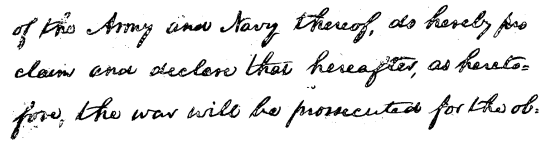 of the Army and Navy thereof, do hereby pro
claim and declare that hereafter, as hereto-
fore, the war will be prossecuted for the ob-